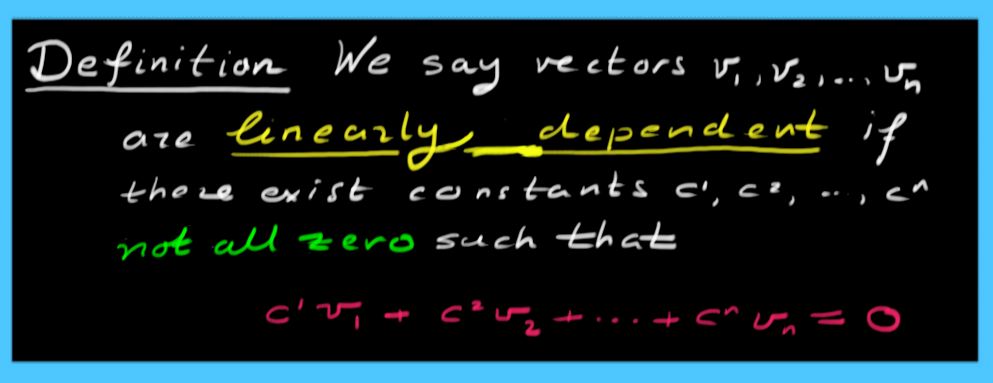 Definition We say vectors v₁, v₂, ..., vₙ
are linearly dependent if
there exist constants c¹, c², ..., cⁿ
not all zero such that
c¹v₁ + c²v₂ + ... + cⁿvₙ = 0